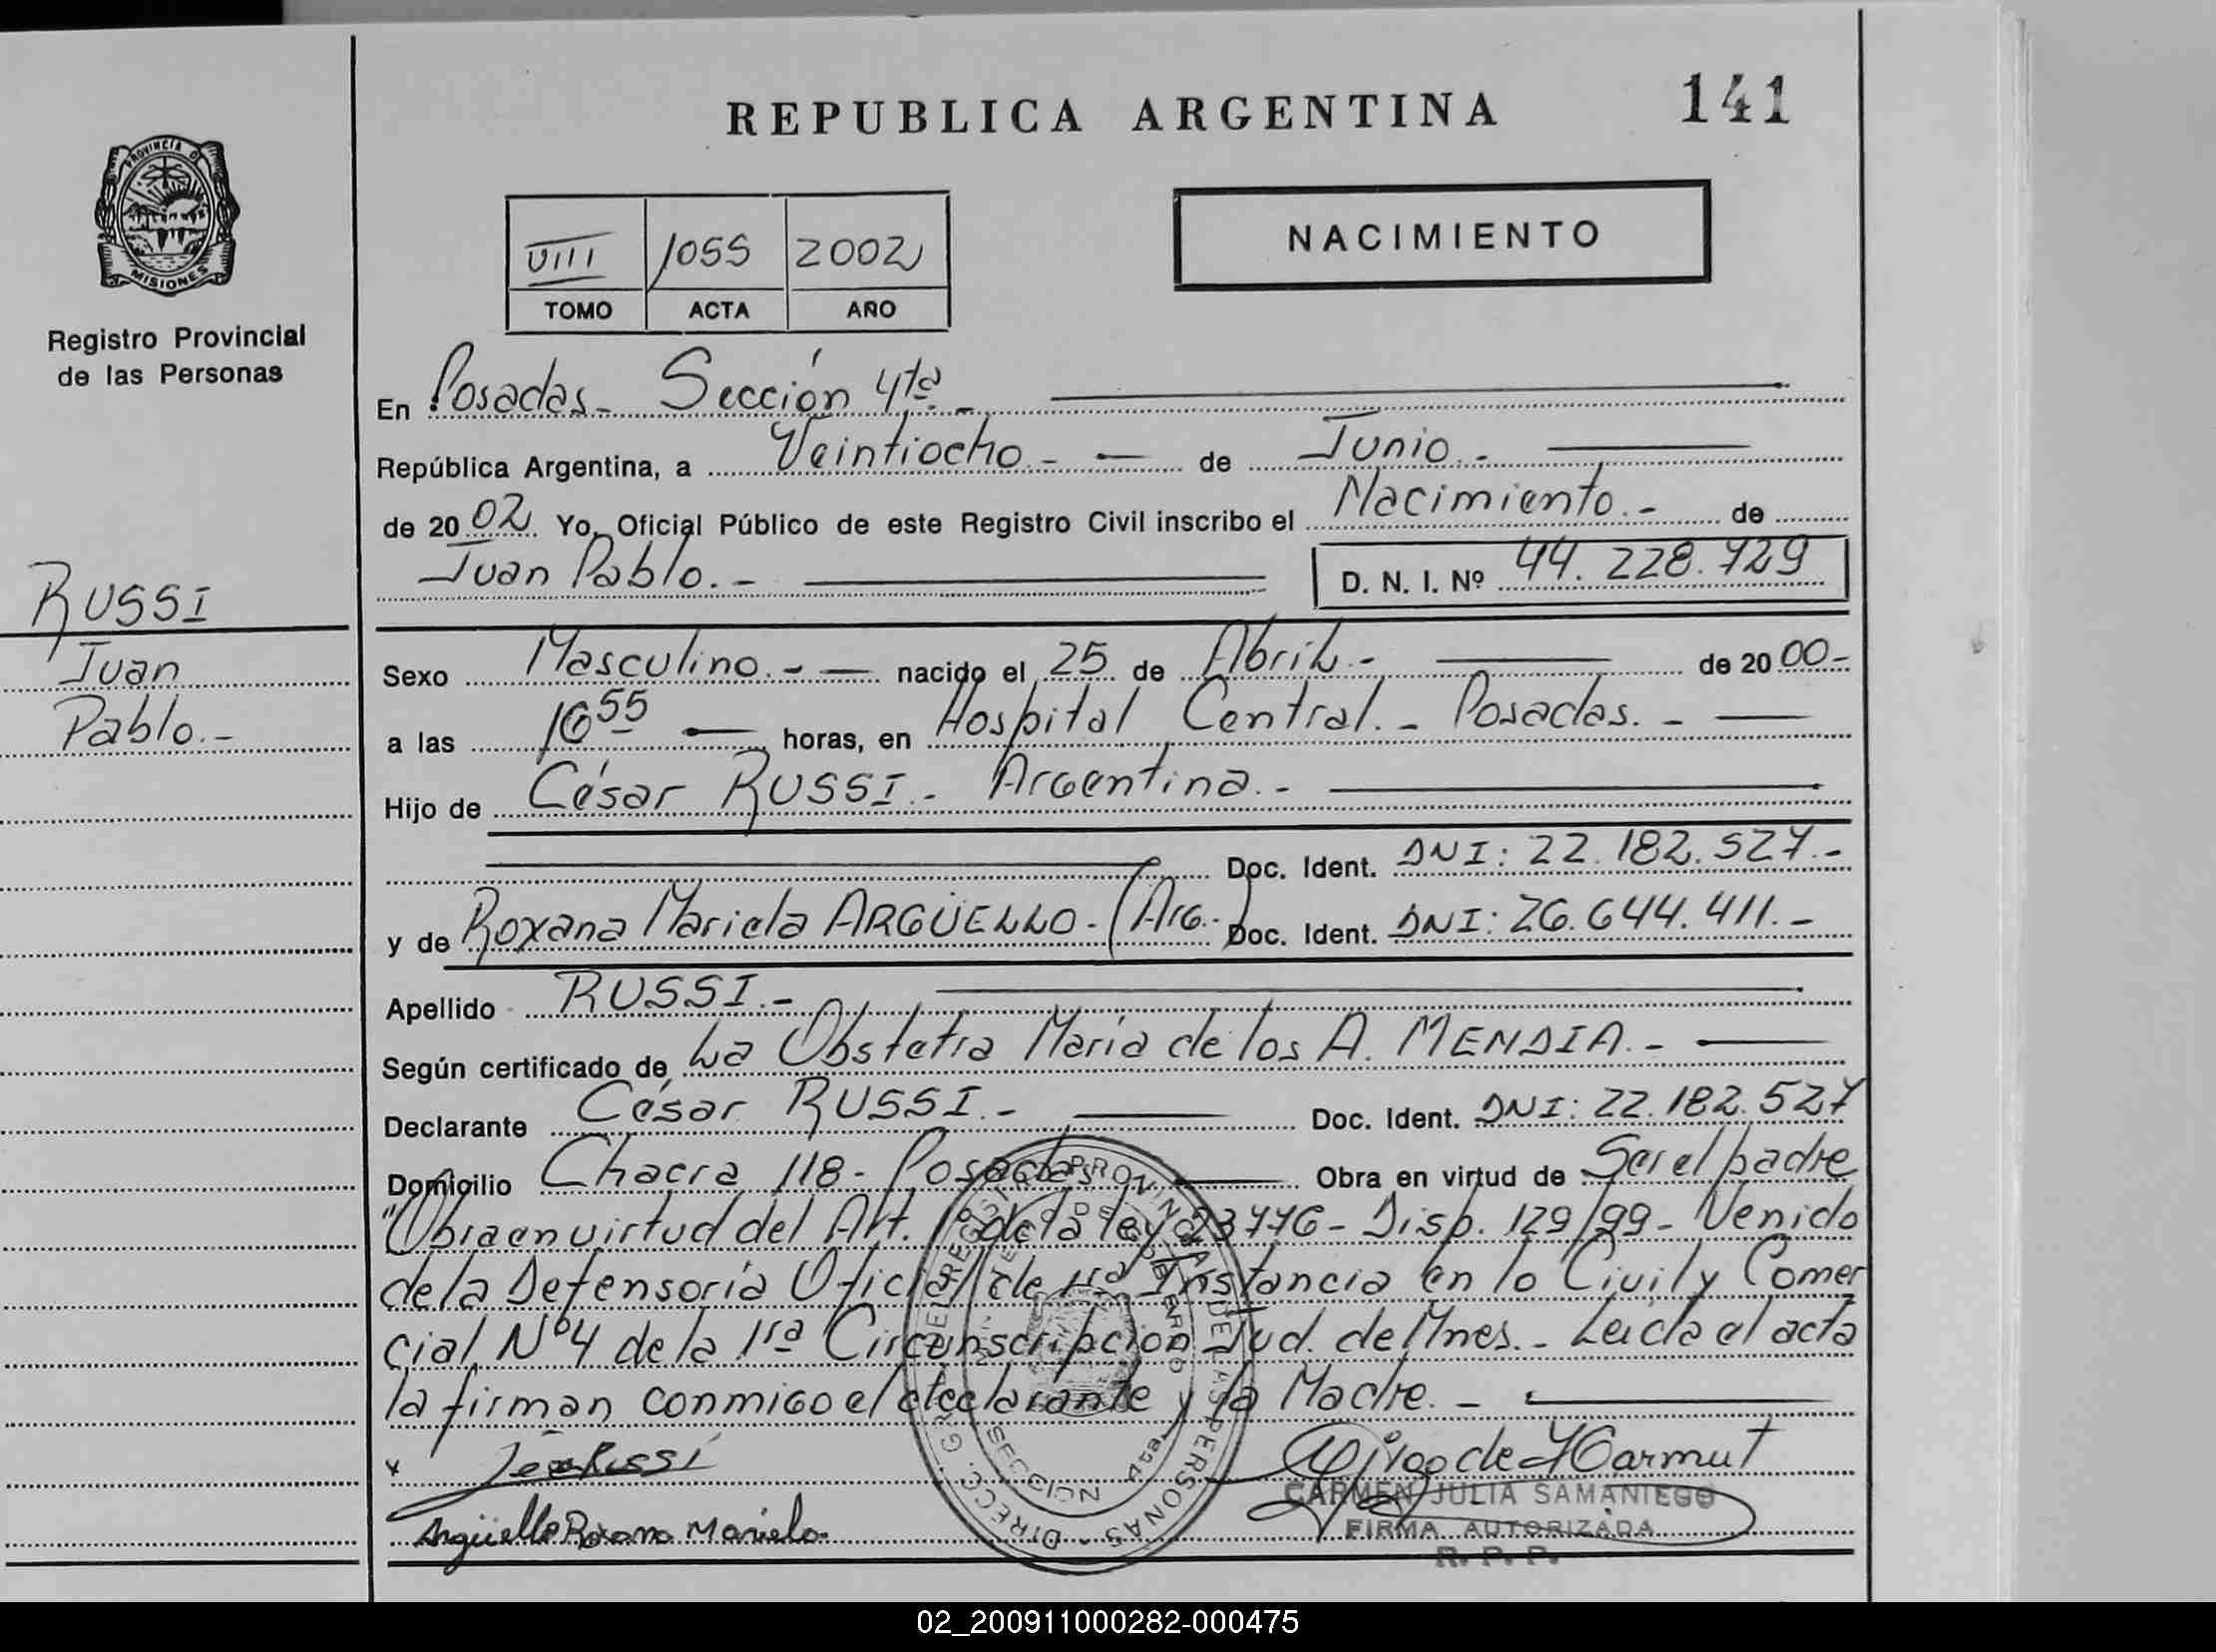 REPUBLICA ARGENTINA
141
PROVINCIA DE
MISIONES
Registro Provincial
de las Personas
VIII 1055 2002
TOMO ACTA AÑO
NACIMIENTO
En Posadas - Sección 4ta. -
República Argentina, a Veintiocho. - de Junio. -
de 2002 Yo, Oficial Público de este Registro Civil inscribo el Nacimiento. - de
Juan Pablo. - D. N. I. Nº 44.228.729
RUSSI
Juan
Pablo. -
Sexo Masculino. - nacido el 25 de Abril. - de 2000 -
a las 16 55 horas, en Hospital Central. - Posadas. -
Hijo de César RUSSI. - Argentina. -
Doc. Ident. DNI: 22.182.527. -
y de Roxana Mariela ARGÜELLO. (Arg.) Doc. Ident. DNI: 26.644.411. -
Apellido RUSSI. -
Según certificado de La Obstetra María de los A. MENDIA. -
Declarante César RUSSI. - Doc. Ident. DNI: 22.182.527
Domicilio Chacra 118 - Posadas Obra en virtud de Ser el padre
"Obra en virtud del Art. 1º de la ley 23776 - Disp. 129/99 - Venido
de la Defensoría Oficial de 1ra Instancia en lo Civil y Comer
cial Nº 4 de la 1ra Circunscripción Jud. de Mnes. - Leída el acta
la firman conmigo el declarante y la Madre. -
Argüello Roxana Mariela
CARMEN JULIA SAMANIEGO
FIRMA AUTORIZADA
R. P. P.
02_200911000282-000475